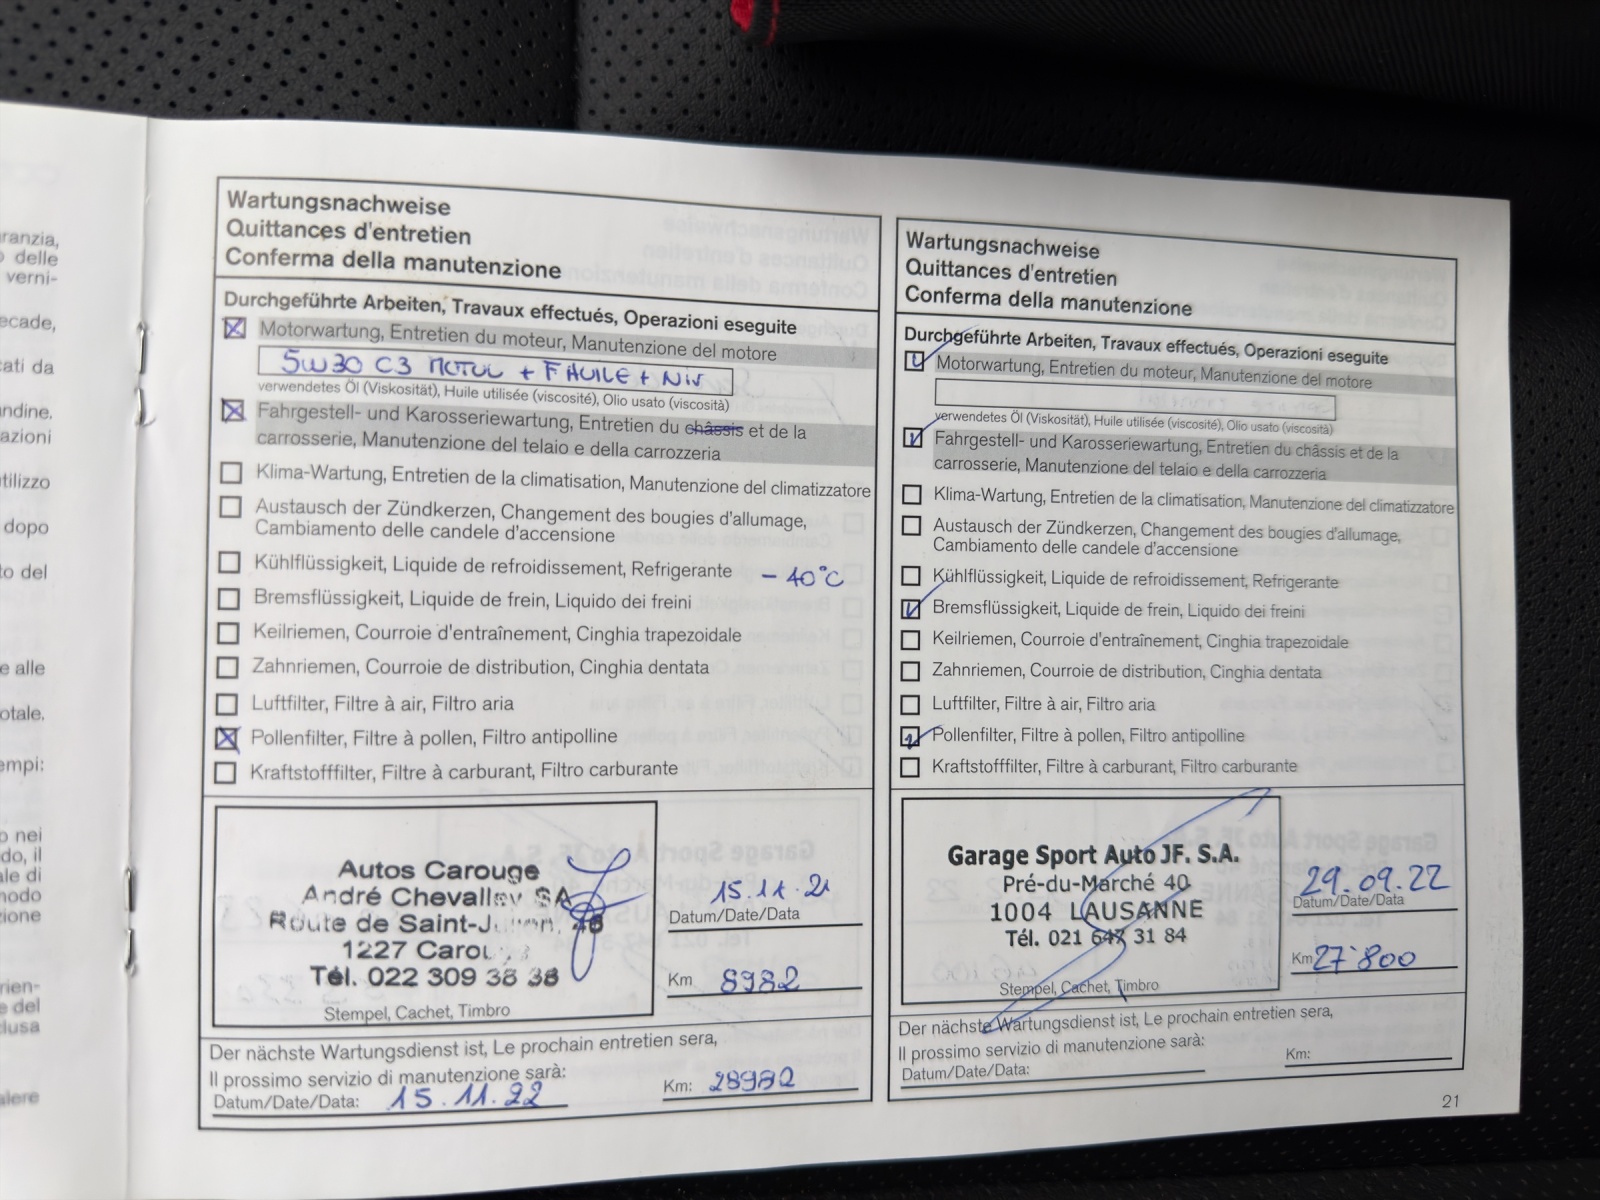 ranzia,
delle
verni-
ecade,
cati da
ndine.
azioni
tilizzo
dopo
to del
e alle
otale.
empi:
nei
do, il
ale di
nodo
zione
rien-
e del
clusa
alere
Wartungsnachweise
Quittances d'entretien
Conferma della manutenzione
Durchgeführte Arbeiten, Travaux effectués, Operazioni eseguite
Motorwartung, Entretien du moteur, Manutenzione del motore
5W30 C3 MOTUL + F HUILE + Niv
verwendetes Öl (Viskosität), Huile utilisée (viscosité), Olio usato (viscosità)
Fahrgestell- und Karosseriewartung, Entretien du châssis et de la
carrosserie, Manutenzione del telaio e della carrozzeria
Klima-Wartung, Entretien de la climatisation, Manutenzione del climatizzatore
Austausch der Zündkerzen, Changement des bougies d'allumage,
Cambiamento delle candele d'accensione
Kühlflüssigkeit, Liquide de refroidissement, Refrigerante - 40°C
Bremsflüssigkeit, Liquide de frein, Liquido dei freini
Keilriemen, Courroie d'entraînement, Cinghia trapezoidale
Zahnriemen, Courroie de distribution, Cinghia dentata
Luftfilter, Filtre à air, Filtro aria
Pollenfilter, Filtre à pollen, Filtro antipolline
Kraftstofffilter, Filtre à carburant, Filtro carburante
Autos Carouge
André Chevalley SA
Route de Saint-Julien, 46
1227 Carouge
Tél. 022 309 38 38
Stempel, Cachet, Timbro
15.11.21
Datum/Date/Data
Km 8982
Der nächste Wartungsdienst ist, Le prochain entretien sera,
Il prossimo servizio di manutenzione sarà:
Datum/Date/Data: 15.11.22
Km: 28982
Wartungsnachweise
Quittances d'entretien
Conferma della manutenzione
Durchgeführte Arbeiten, Travaux effectués, Operazioni eseguite
Motorwartung, Entretien du moteur, Manutenzione del motore
verwendetes Öl (Viskosität), Huile utilisée (viscosité), Olio usato (viscosità)
Fahrgestell- und Karosseriewartung, Entretien du châssis et de la
carrosserie, Manutenzione del telaio e della carrozzeria
Klima-Wartung, Entretien de la climatisation, Manutenzione del climatizzatore
Austausch der Zündkerzen, Changement des bougies d'allumage,
Cambiamento delle candele d'accensione
Kühlflüssigkeit, Liquide de refroidissement, Refrigerante
Bremsflüssigkeit, Liquide de frein, Liquido dei freini
Keilriemen, Courroie d'entraînement, Cinghia trapezoidale
Zahnriemen, Courroie de distribution, Cinghia dentata
Luftfilter, Filtre à air, Filtro aria
Pollenfilter, Filtre à pollen, Filtro antipolline
Kraftstofffilter, Filtre à carburant, Filtro carburante
Garage Sport Auto JF. S.A.
Pré-du-Marché 40
1004 LAUSANNE
Tél. 021 647 31 84
Stempel, Cachet, Timbro
29.09.22
Datum/Date/Data
Km 27'800
Der nächste Wartungsdienst ist, Le prochain entretien sera,
Il prossimo servizio di manutenzione sarà:
Datum/Date/Data:
Km:
21